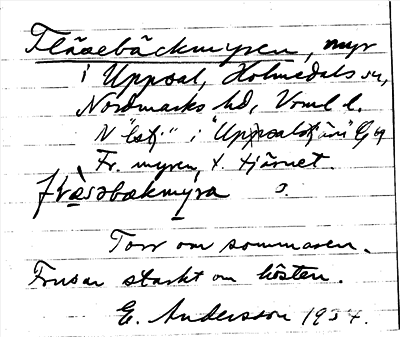 Fläsebäckmyren, myr
i Uppsal, Holmedals sn,
Nordmarks hd, Vrml l.
N "bokst." i "Uppsalstjärn" Gj 9
Fr. myren t. tjärnet.
fræsəbækmyra s.
Torr om sommaren.
Frusar starkt om hösten.
E. Andersson 1934.